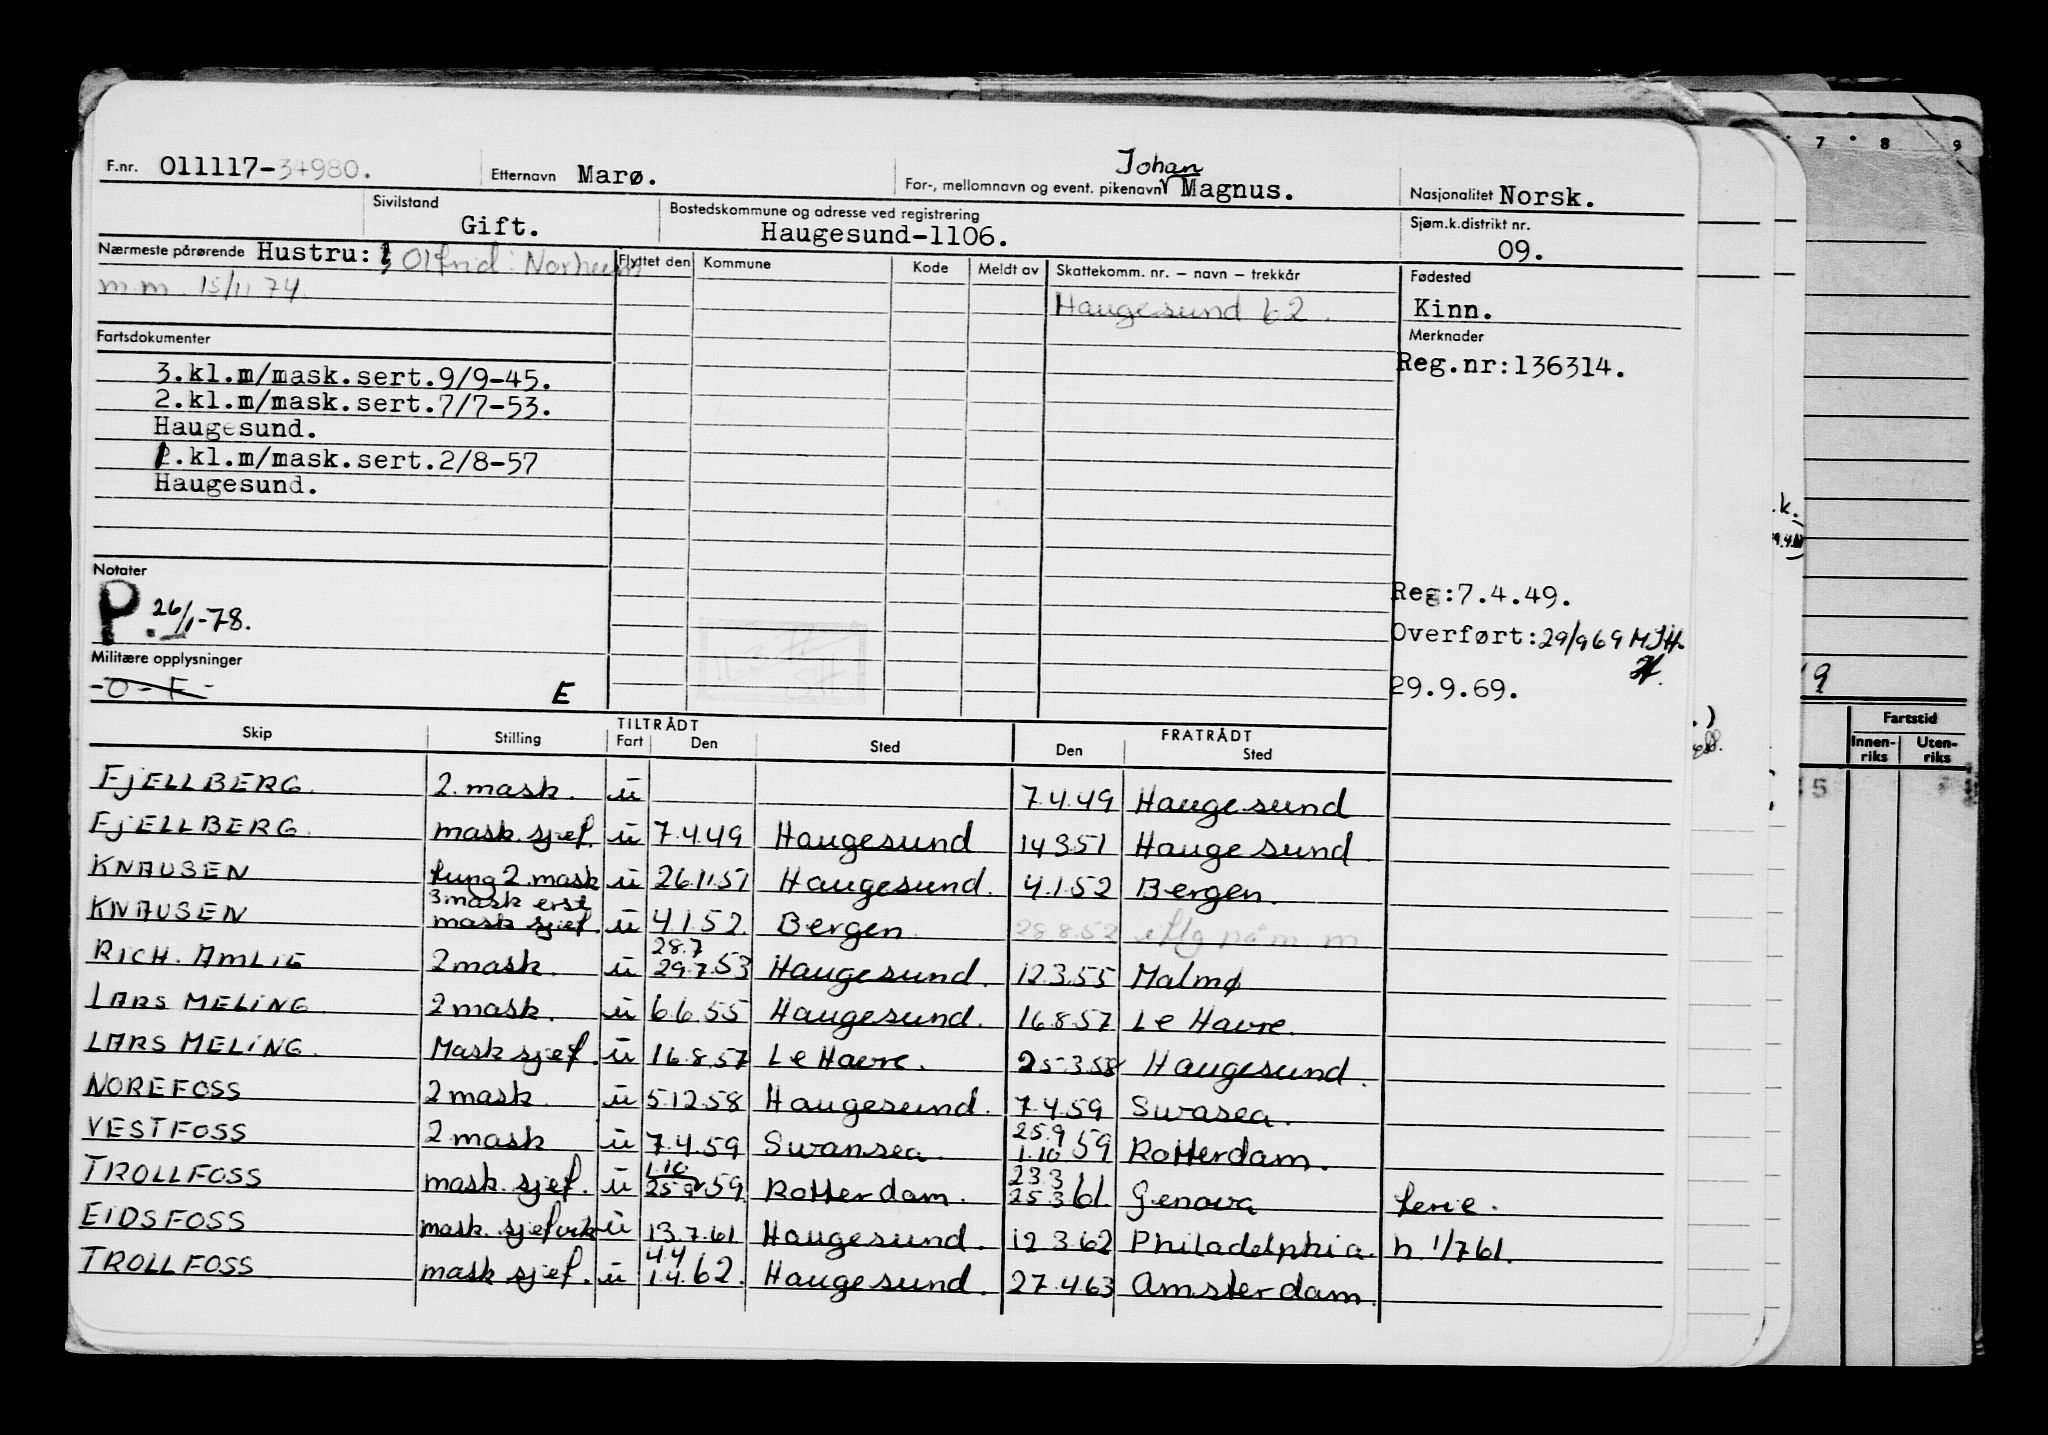 7 8 9
F.nr. 011117-34980. Etternavn Marø. For-, mellomnavn og event. pikenavn Johan Magnus. Nasjonalitet Norsk.
Sivilstand Gift. Bostedskommune og adresse ved registrering Haugesund-1106. Sjøm.k.distrikt nr. 09.
Nærmeste pårørende Hustru: Olfrid Norheim Flyttet den Kommune Kode Meldt av Skattekomm. nr. – navn – trekkår Fødested
m m 15/11 74. Haugesund 62. Kinn.
Fartsdokumenter Merknader
Reg.nr:136314.
3.kl.m/mask.sert.9/9-45.
2.kl.m/mask.sert.7/7-53.
Haugesund.
1.kl.m/mask.sert.2/8-57
Haugesund.
Notater
P. 26/1-78.
Reg:7.4.49.
Overført:29/9 69 MJH.
Militære opplysninger
-O-F- E
29.9.69.
TILTRÅDT FRATRÅDT
Skip Stilling Fart Den Sted Den Sted
FJELLBERG. 2. mask. u 7.4.49 Haugesund
FJELLBERG. mask. sjef. u 7.4.49 Haugesund 14 3 51 Haugesund.
KNAUSEN fung 2. mask u 26.11.51 Haugesund. 4.1.52 Bergen.
KNAUSEN 3 mask erst mask sjef. u 4.1.52. Bergen 28 8.52 m m
RICH. AMLIE 2 mask. u 28.7 29.7.53 Haugesund. 12.3.55 Malmø
LARS MELING 2 mask. u 6.6.55 Haugesund. 16.8.57 Le Havre.
LARS MELING. Mask sjef. u 16.8.57 Le Havre. 25.3.58 Haugesund.
NOREFOSS 2 mask. u 5.12.58 Haugesund. 7.4.59 Swasea.
VESTFOSS 2. mask u 7.4.59 Swansea. 25.9 1.10 59 Rotterdam.
TROLLFOSS mask. sjef. u 1.10 25.9 59. Rotterdam. 23.3 25.3 61. Genova ferie.
EIDSFOSS mask. sjef vik u 13.7.61 Haugesund. 12 3.62 Philadelphia. h. 1/7 61.
TROLLFOSS mask sjef. u 4.4 1.4.62. Haugesund. 27.4.63 Amsterdam.
Fartstid
Innen-
riks
Uten-
riks